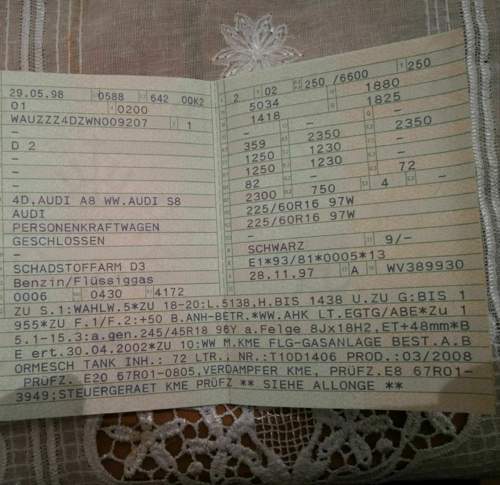 29.05.98 0588 642 00K2
01 0200
WAUZZZ4DZWN009207 1
-
D 2
-
-
-
4D.AUDI A8 WW.AUDI S8
AUDI
PERSONENKRAFTWAGEN
GESCHLOSSEN
-
SCHADSTOFFARM D3
Benzin/Flüssiggas
0006 0430 4172
2 02 250 /6600 250
5034 1880
1418 1825
- - -
359 2350 2350
1250 1230
1250 1230
82 - 72
2300 750 4 -
225/60R16 97W
225/60R16 97W
-
-
SCHWARZ 9/-
E1*93/81*0005*13
28.11.97 A WV389930
ZU S.1:WAHLW.5*ZU 18-20:L.5138,H.BIS 1438 U.ZU G:BIS 1
955*ZU F.1/F.2:+50 B.ANH-BETR.*WW.AHK LT.EGTG/ABE*Zu 1
5.1-15.3:a.gen.245/45R18 96Y a.Felge 8Jx18H2,ET+48mm*B
E ert.30.04.2002*ZU 10:WW M.KME FLG-GASANLAGE BEST.A.B
ORMESCH TANK INH.: 72 LTR., NR.:T10D1406 PROD.:03/2008
PRÜFZ. E20 67R01-0805,VERDAMPFER KME, PRÜFZ.E8 67R01-
3949;STEUERGERAET KME PRÜFZ ** SIEHE ALLONGE **